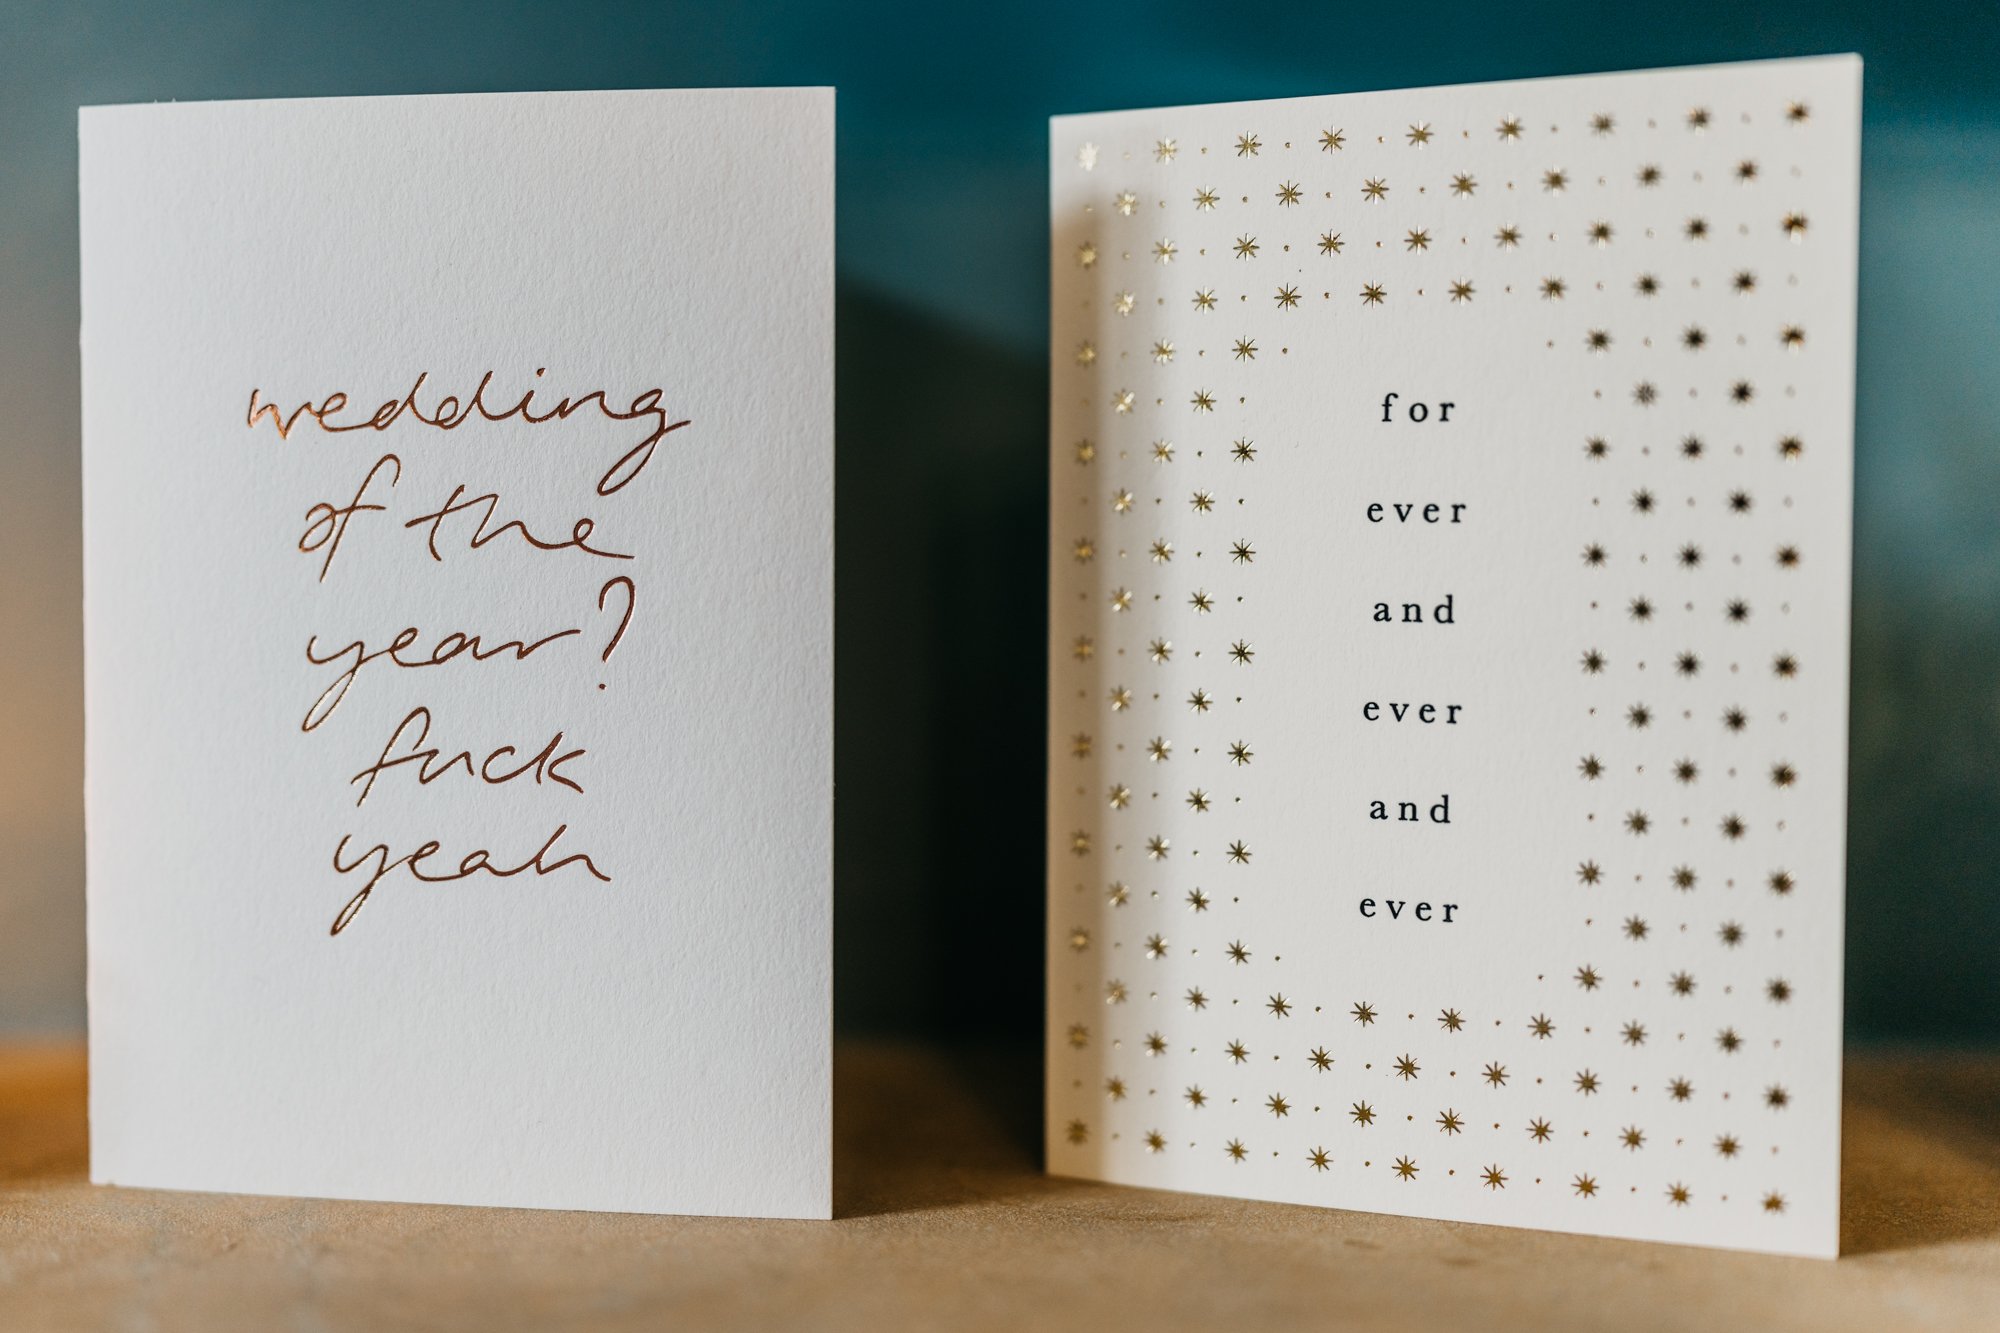 wedding
of the
year?
fuck
yeah
for
ever
and
ever
and
ever